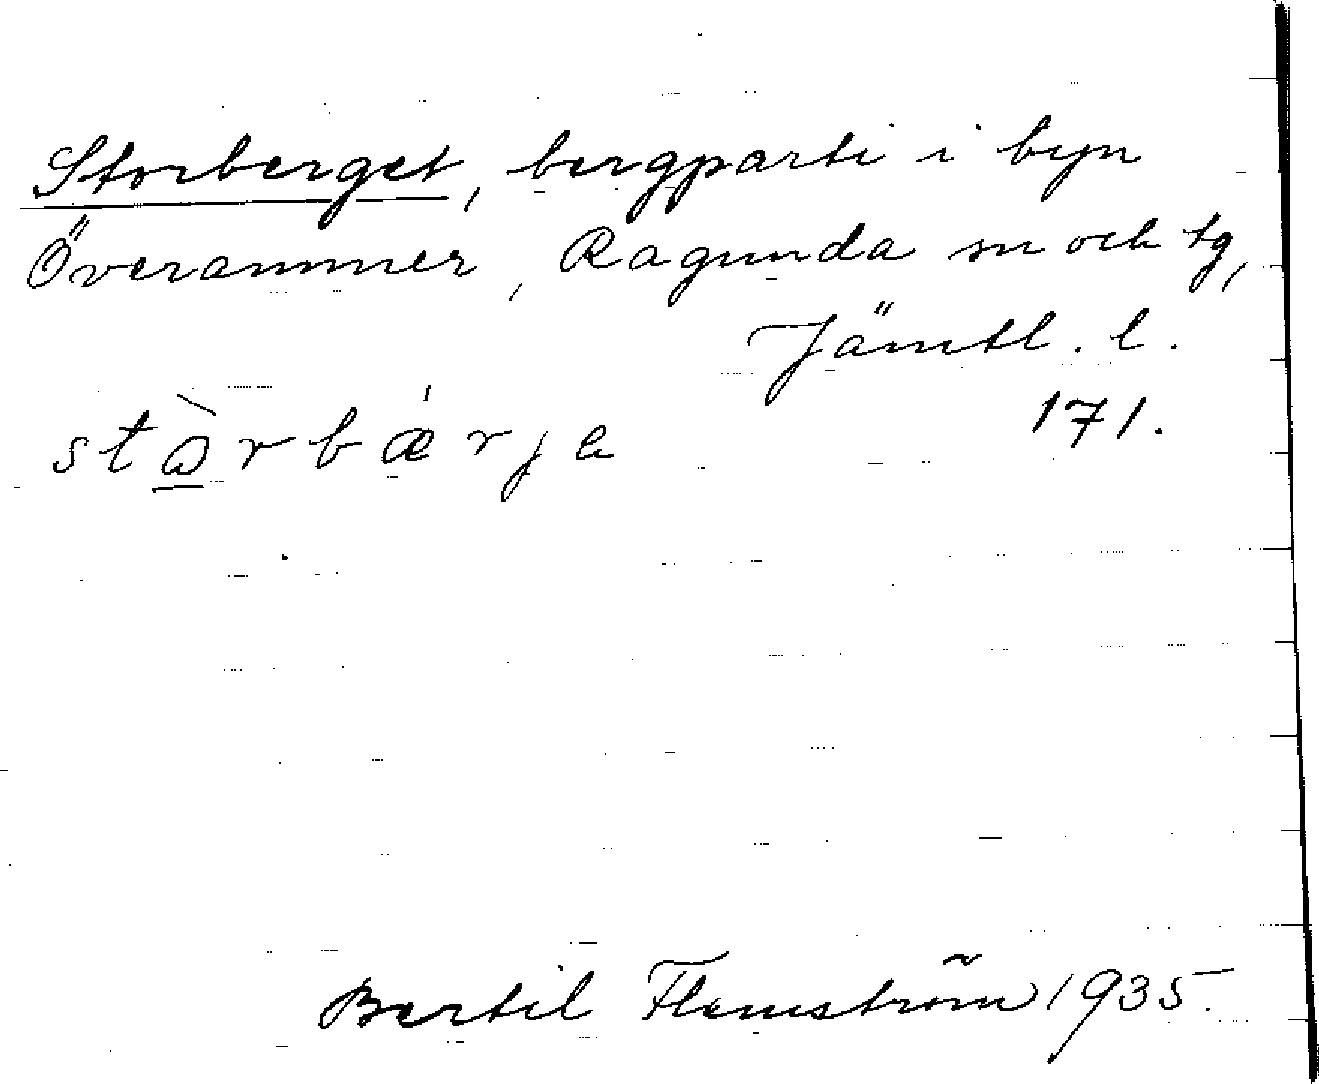 Storberget, bergparti i byn
Överammer, Ragunda sn och tg,
Jämtl. l.
171.
stòrbǽrja
Bertil Flemström 1935.